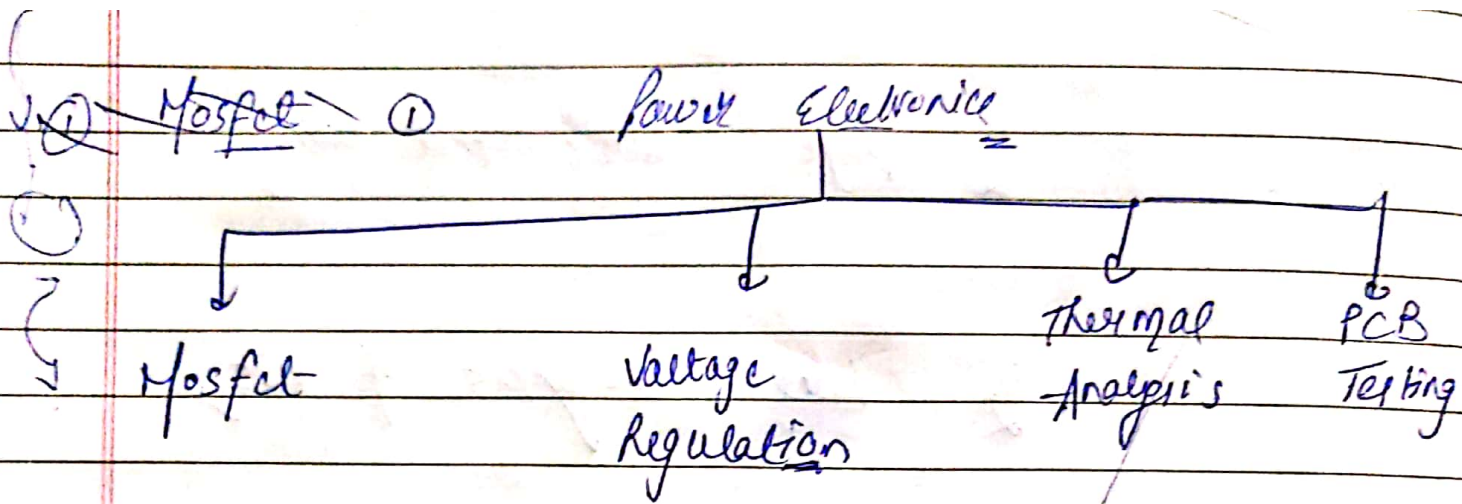 ① Mosfet ① Power Electronics
Mosfet
Voltage
Regulation
Thermal
Analysis
PCB
Testing